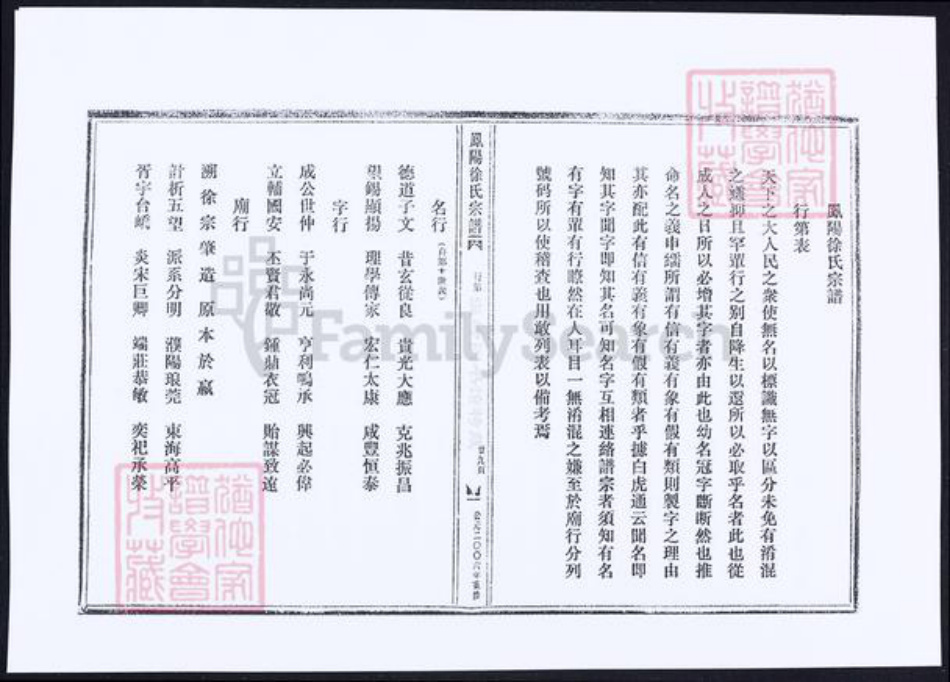 鳳陽徐氏宗譜
行第表
天下之大人民之衆使無名以標識無字以區分未免有淆混
之嫌抑且罕輩行之别自降生以還所以必取乎名者此也從
成人之日所以必增其字者亦由此也幼名冠字斷斷然也推
命名之義申繻所謂有信有義有象有假有類則製字之理由
其亦配此有信有義有象有假有類者乎據白虎通云聞名即
知其字聞字即知其名可知名字互相連絡譜宗者須知有名
有字有輩有行瞭然在人耳目一無淆混之嫌至於廟行分列
號码所以使稽查也用敢列表以備考焉
鳳陽徐氏宗譜
行第
廿九頁
公元二〇〇六年重修
名行
德道子文 昔玄從良 貴光大應 克兆振昌
望錫顯揚 理學傳家 宏仁太康 咸豐恒泰
字行
成公世仲 于永尚元 亨利鳴承 興起必偉
立輔國安 丕賢君敬 鍾鼎衣冠 貽謀致遠
廟行
溯徐宗肇造 原本於嬴
計析五望 派系分明 濮陽琅莞 東海高平
胥宇台嶠 炎宋巨卿 端莊恭敏 奕祀承榮
FamilySearch